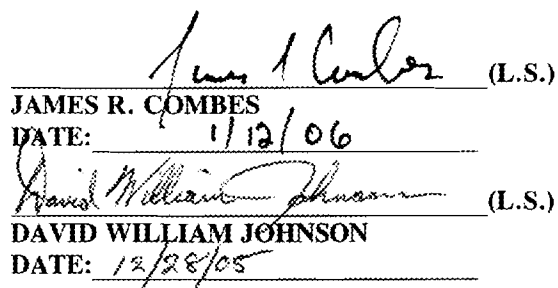 James R Combes (L.S.)
JAMES R. COMBES
DATE: 1/12/06
David William Johnson (L.S.)
DAVID WILLIAM JOHNSON
DATE: 12/28/05